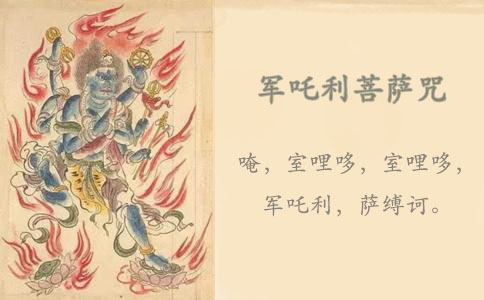 军吒利菩萨咒
唵，室哩哆，室哩哆，
军吒利，萨缚诃。